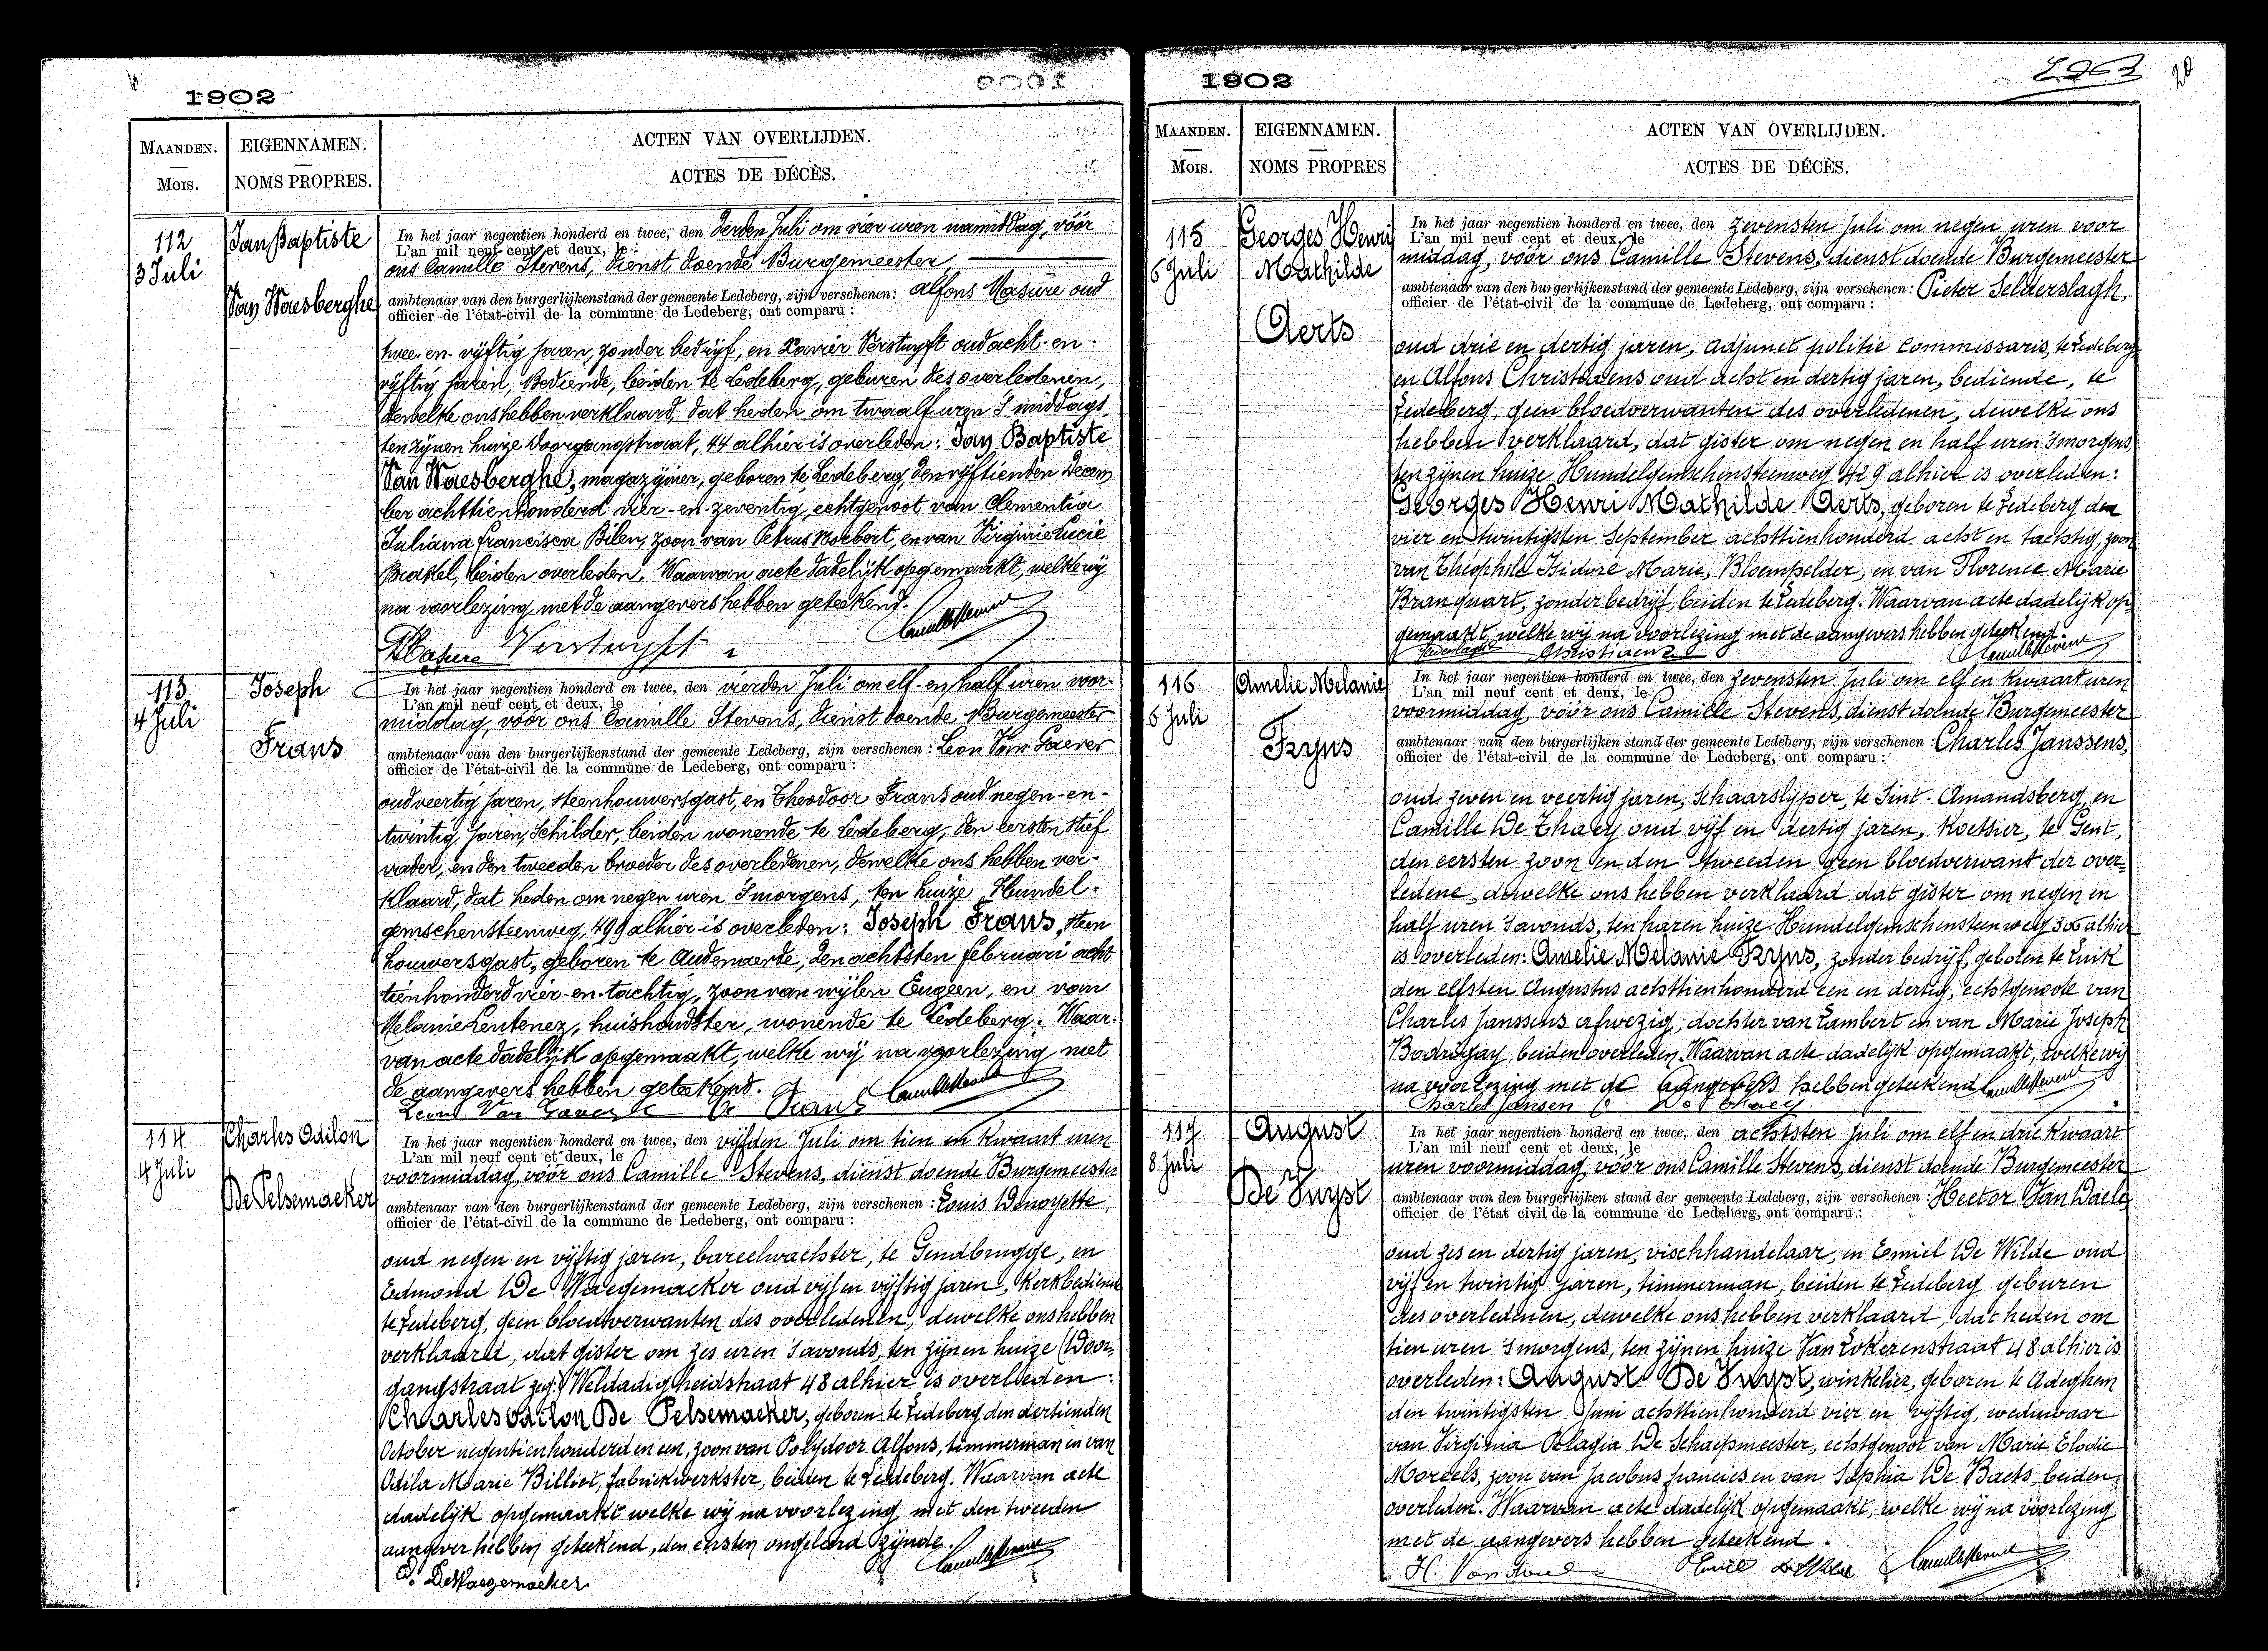 1902
MAANDEN.
Mois.
EIGENNAMEN.
NOMS PROPRES.
ACTEN VAN OVERLIJDEN.
ACTES DE DÉCÈS.
112
3 Juli
Jan Baptiste
Van Waesberghe
In het jaar negentien honderd en twee, den derden Juli om vier uren namiddag, vóór
L'an mil neuf cent et deux, le
ons Camille Stevens, dienst doende Burgemeester
ambtenaar van den burgerlijkenstand der gemeente Ledeberg, zijn verschenen: Alfons Masure oud
officier de l'état-civil de la commune de Ledeberg, ont comparu :
twee-en-vijftig jaren, zonder bedrijf, en Xavier Verstuyft oud acht-en-
vijftig jaren, Bediende, beiden te Ledeberg, geburen des overledenen,
dewelke ons hebben verklaard, dat heden om twaalf uren 's middags,
ten zijnen huize Doorgangstraat, 44 alhier is overleden: Jan Baptiste
Van Waesberghe, magazijnier, geboren te Ledeberg, den vijftienden Decem
ber achttienhonderd vier-en-zeventig, echtgenoot van Clementia
Juliana Francisca Bilen, zoon van Petrus Norbert, en van Virginie Lucie
Brakel, beiden overleden. Waarvan acte dadelijk opgemaakt, welke wij
na voorlezing met de aangevers hebben geteekend.
Masure Verstuyft Camille Stevens
113
4 Juli
Joseph
Frans
In het jaar negentien honderd en twee, den vierden Juli om elf-en-half uren voor-
L'an mil neuf cent et deux, le
middag, vóór ons Camille Stevens, dienst doende Burgemeester
ambtenaar van den burgerlijkenstand der gemeente Ledeberg, zijn verschenen : Leon Van Gaever
officier de l'état-civil de la commune de Ledeberg, ont comparu :
oud veertig jaren, steenhouwersgast, en Theodoor Frans oud negen-en-
twintig jaren, Schilder, beiden wonende te Ledeberg, den eersten stief
vader, en den tweeden broeder des overledenen, dewelke ons hebben ver-
klaard, dat heden om negen uren 's morgens, ten huize Hundel-
gemschensteenweg, 499 alhier is overleden: Joseph Frans, steen
houwersgast, geboren te Audenaerde, den achtsten februari acht
tienhonderd vier-en-tachtig, zoon van wijlen Eugeen, en van
Melanie Lentenez, huishoudster, wonende te Ledeberg. Waar-
van acte dadelijk opgemaakt, welke wij na voorlezing met
de aangevers hebben geteekend. Camille Stevens
Leon Van Gaever Frans
114
4 Juli
Charles Odilon
De Pelsemaeker
In het jaar negentien honderd en twee, den vijfden Juli om tien en kwaart uren
L'an mil neuf cent et deux, le
voormiddag, vóór ons Camille Stevens, dienst doende Burgemeester
ambtenaar van den burgerlijkenstand der gemeente Ledeberg, zijn verschenen : Louis Denoyette,
officier de l'état-civil de la commune de Ledeberg, ont comparu :
oud negen en vijftig jaren, bareelwachter, te Gendbrugge, en
Edmond De Waegemaeker oud vijf en vijftig jaren, kerkbediende
te Ledeberg, geen bloedverwanten des overledenen, dewelke ons hebben
verklaard, dat gister om zes uren 's avonds, ten zijnen huize (Door-
gangstraat zeg:) Weldadigheidstraat 48 alhier is overleden:
Charles Odilon De Pelsemaeker, geboren te Ledeberg den dertienden
October negentienhonderd en een, zoon van Polydoor Alfons, timmerman en van
Odila Marie Billiet, fabriekwerkster, beiden te Ledeberg. Waarvan acte
dadelijk opgemaakt welke wij na voorlezing met den tweeden
aangever hebben geteekend, den eersten ongeleerd zijnde.
E. DeWaegemaeker Camille Stevens
1902
20
MAANDEN.
Mois.
EIGENNAMEN.
NOMS PROPRES
ACTEN VAN OVERLIJDEN.
ACTES DE DÉCÈS.
115
6 Juli
Georges Henri
Mathilde
Aerts
In het jaar negentien honderd en twee, den zevensten Juli om negen uren voor
L'an mil neuf cent et deux, le
middag, vóór ons Camille Stevens, dienst doende Burgemeester
ambtenaar van den burgerlijkenstand der gemeente Ledeberg, zijn verschenen : Pieter Selderslagh,
officier de l'état-civil de la commune de Ledeberg, ont comparu :
oud drie en dertig jaren, adjunct politie commissaris, te Ledeberg
en Alfons Christiaens oud acht en dertig jaren, bediende, te
Ledeberg, geen bloedverwanten des overledenen, dewelke ons
hebben verklaard, dat gister om negen en half uren 's morgens,
ten zijnen huize Hundelgemschensteenweg 429 alhier is overleden:
Georges Henri Mathilde Aerts, geboren te Ledeberg den
vier en twintigsten September achttienhonderd acht en tachtig, zoon
van Théophile Isidore Marie, Bloempelder, en van Florence Marie
Branquart, zonder bedrijf, beiden te Ledeberg. Waarvan acte dadelijk op-
gemaakt, welke wij na voorlezing met de aangevers hebben geteekend.
Selderslagh Christiaens Camille Stevens
116
6 Juli
Amelie Melanie
Fryns
In het jaar negentien honderd en twee, den zevensten Juli om elf en kwaart uren
L'an mil neuf cent et deux, le
voormiddag, vóór ons Camille Stevens, dienst doende Burgemeester
ambtenaar van den burgerlijken stand der gemeente Ledeberg, zijn verschenen : Charles Janssens,
officier de l'état-civil de la commune de Ledeberg, ont comparu :
oud zeven en veertig jaren, Schaarslijper, te Sint-Amandsberg, en
Camille De Thaey oud vijf en dertig jaren, koetsier, te Gent,
den eersten zoon en den tweeden geen bloedverwant der over-
ledene, dewelke ons hebben verklaard dat gister om negen en
half uren 's avonds, ten haren huize Hundelgemschensteenweg 300 alhier
is overleden: Amelie Melanie Fryns, zonder bedrijf, geboren te Luik
den elfsten Augustus achttienhonderd een en dertig, echtgenoote van
Charles Janssens afwezig, dochter van Lambert en van Marie Joseph
Bodrigay, beiden overleden. Waarvan acte dadelijk opgemaakt, welke wij
na voorlezing met de aangevers hebben geteekend Camille Stevens
Charles Jansen De Thaey
117
8 Juli
August
De Vuyst
In het jaar negentien honderd en twee, den achtsten Juli om elf en drie kwaart
L'an mil neuf cent et deux, le
uren voormiddag, vóór ons Camille Stevens, dienst doende Burgemeester
ambtenaar van den burgerlijken stand der gemeente Ledeberg, zijn verschenen : Hector Van Daele
officier de l'état civil de la commune de Ledeberg, ont comparu :
oud zes en dertig jaren, vischhandelaar, en Emiel De Wilde oud
vijf en twintig jaren, timmerman, beiden te Ledeberg geburen
des overledenen, dewelke ons hebben verklaard, dat heden om
tien uren 's morgens, ten zijnen huize Van Lokerenstraat 48 alhier is
overleden: August De Vuyst, winkelier, geboren te Adeghem
den twintigsten Juni achttienhonderd vier en vijftig, weduwaar
van Virginia Pelagia De Schaepmeester, echtgenoot van Marie Elodie
Moreels, zoon van Jacobus francies en van Sophia De Baets, beiden
overleden. Waarvan acte dadelijk opgemaakt, welke wij na voorlezing
met de aangevers hebben geteekend.
H. Van daele Emile De Wilde Camille Stevens